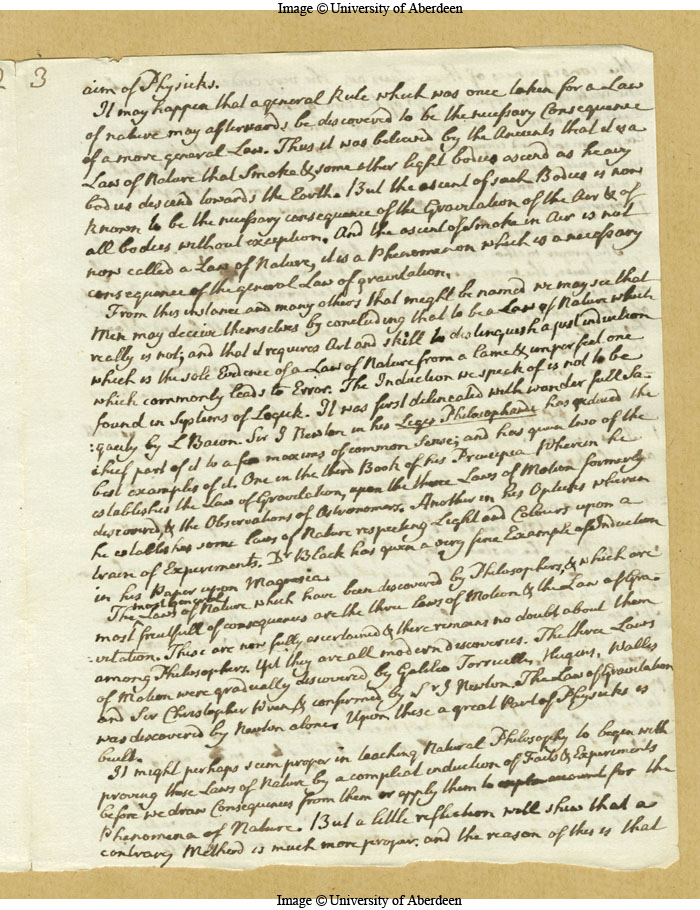 Image © University of Aberdeen
3
aim of Physicks.
It may happen that a general Rule which was once taken for a Law
of nature may afterwards be discovered to be the necessary Consequence
of a more general Law. Thus it was believed by the Ancients that it is a
Law of Nature that Smoke & some other light bodies ascend as heavy
bodies descend towards the Earth. But the ascent of such Bodies is now
known to be the necessary consequence of the Gravitation of the Air & of
all bodies without exception. And the ascent of Smoke in Air is not
now called a Law of Nature, it is a Phenomenon which is a necessary
consequence of the general Law of gravitation.
From this instance and many others that might be named we may see that
Men may deceive themselves by concluding that to be a Law of Nature which
really is not; and that it requires Art and skill to distinguish a just induction
which is the sole Evidence of a Law of Nature from a lame & imperfect one
which commonly leads to Error. The Induction we speak of is not to be
found in Systems of Logick. It was first delineated with wonderfull Sa-
:gacity by L Bacon. Sir I Newton in his Leges Philosophandi has reduced the
chief part of it to a few maxims of common Sense; and has given two of the
best examples of it. One in the third Book of his Principia Wherein he
establishes the Law of Gravitation, upon the three Laws of Motion formerly
discovered, & the Observations of Astronomers. Another in his Opticks wherein
he establishes some laws of Nature respecting Light and Colours upon a
train of Experiments. Dr Black has given a very fine Example of Induction
in his Paper upon Magnesia.
The most general Laws of Nature which have been discovered by Philosophers, & which are
most fruitfull of consequences are the three laws of Motion & the Law of Gra-
:vitation. These are now fully ascertained & there remains no doubt about them
among Philosophers. Yet they are all modern discoveries. The three Laws
of Motion were gradually discovered by Galileo Torricelli, Hugens, Wallis
and Sir Christopher Wren, & confirmed by Sir I Newton. The Law of Gravitation
was discovered by Newton alone. Upon these a great Part of Physicks is
built.
It might perhaps seem proper in teaching Natural Philosophy to begin with
proving these Laws of Nature by a compleat induction of Facts & Experiments
before we draw Consequences from them or apply them to account for the
Phenomena of Nature. But a little reflection will shew that a
contrary Method is much more proper. and the reason of this is that
Image © University of Aberdeen